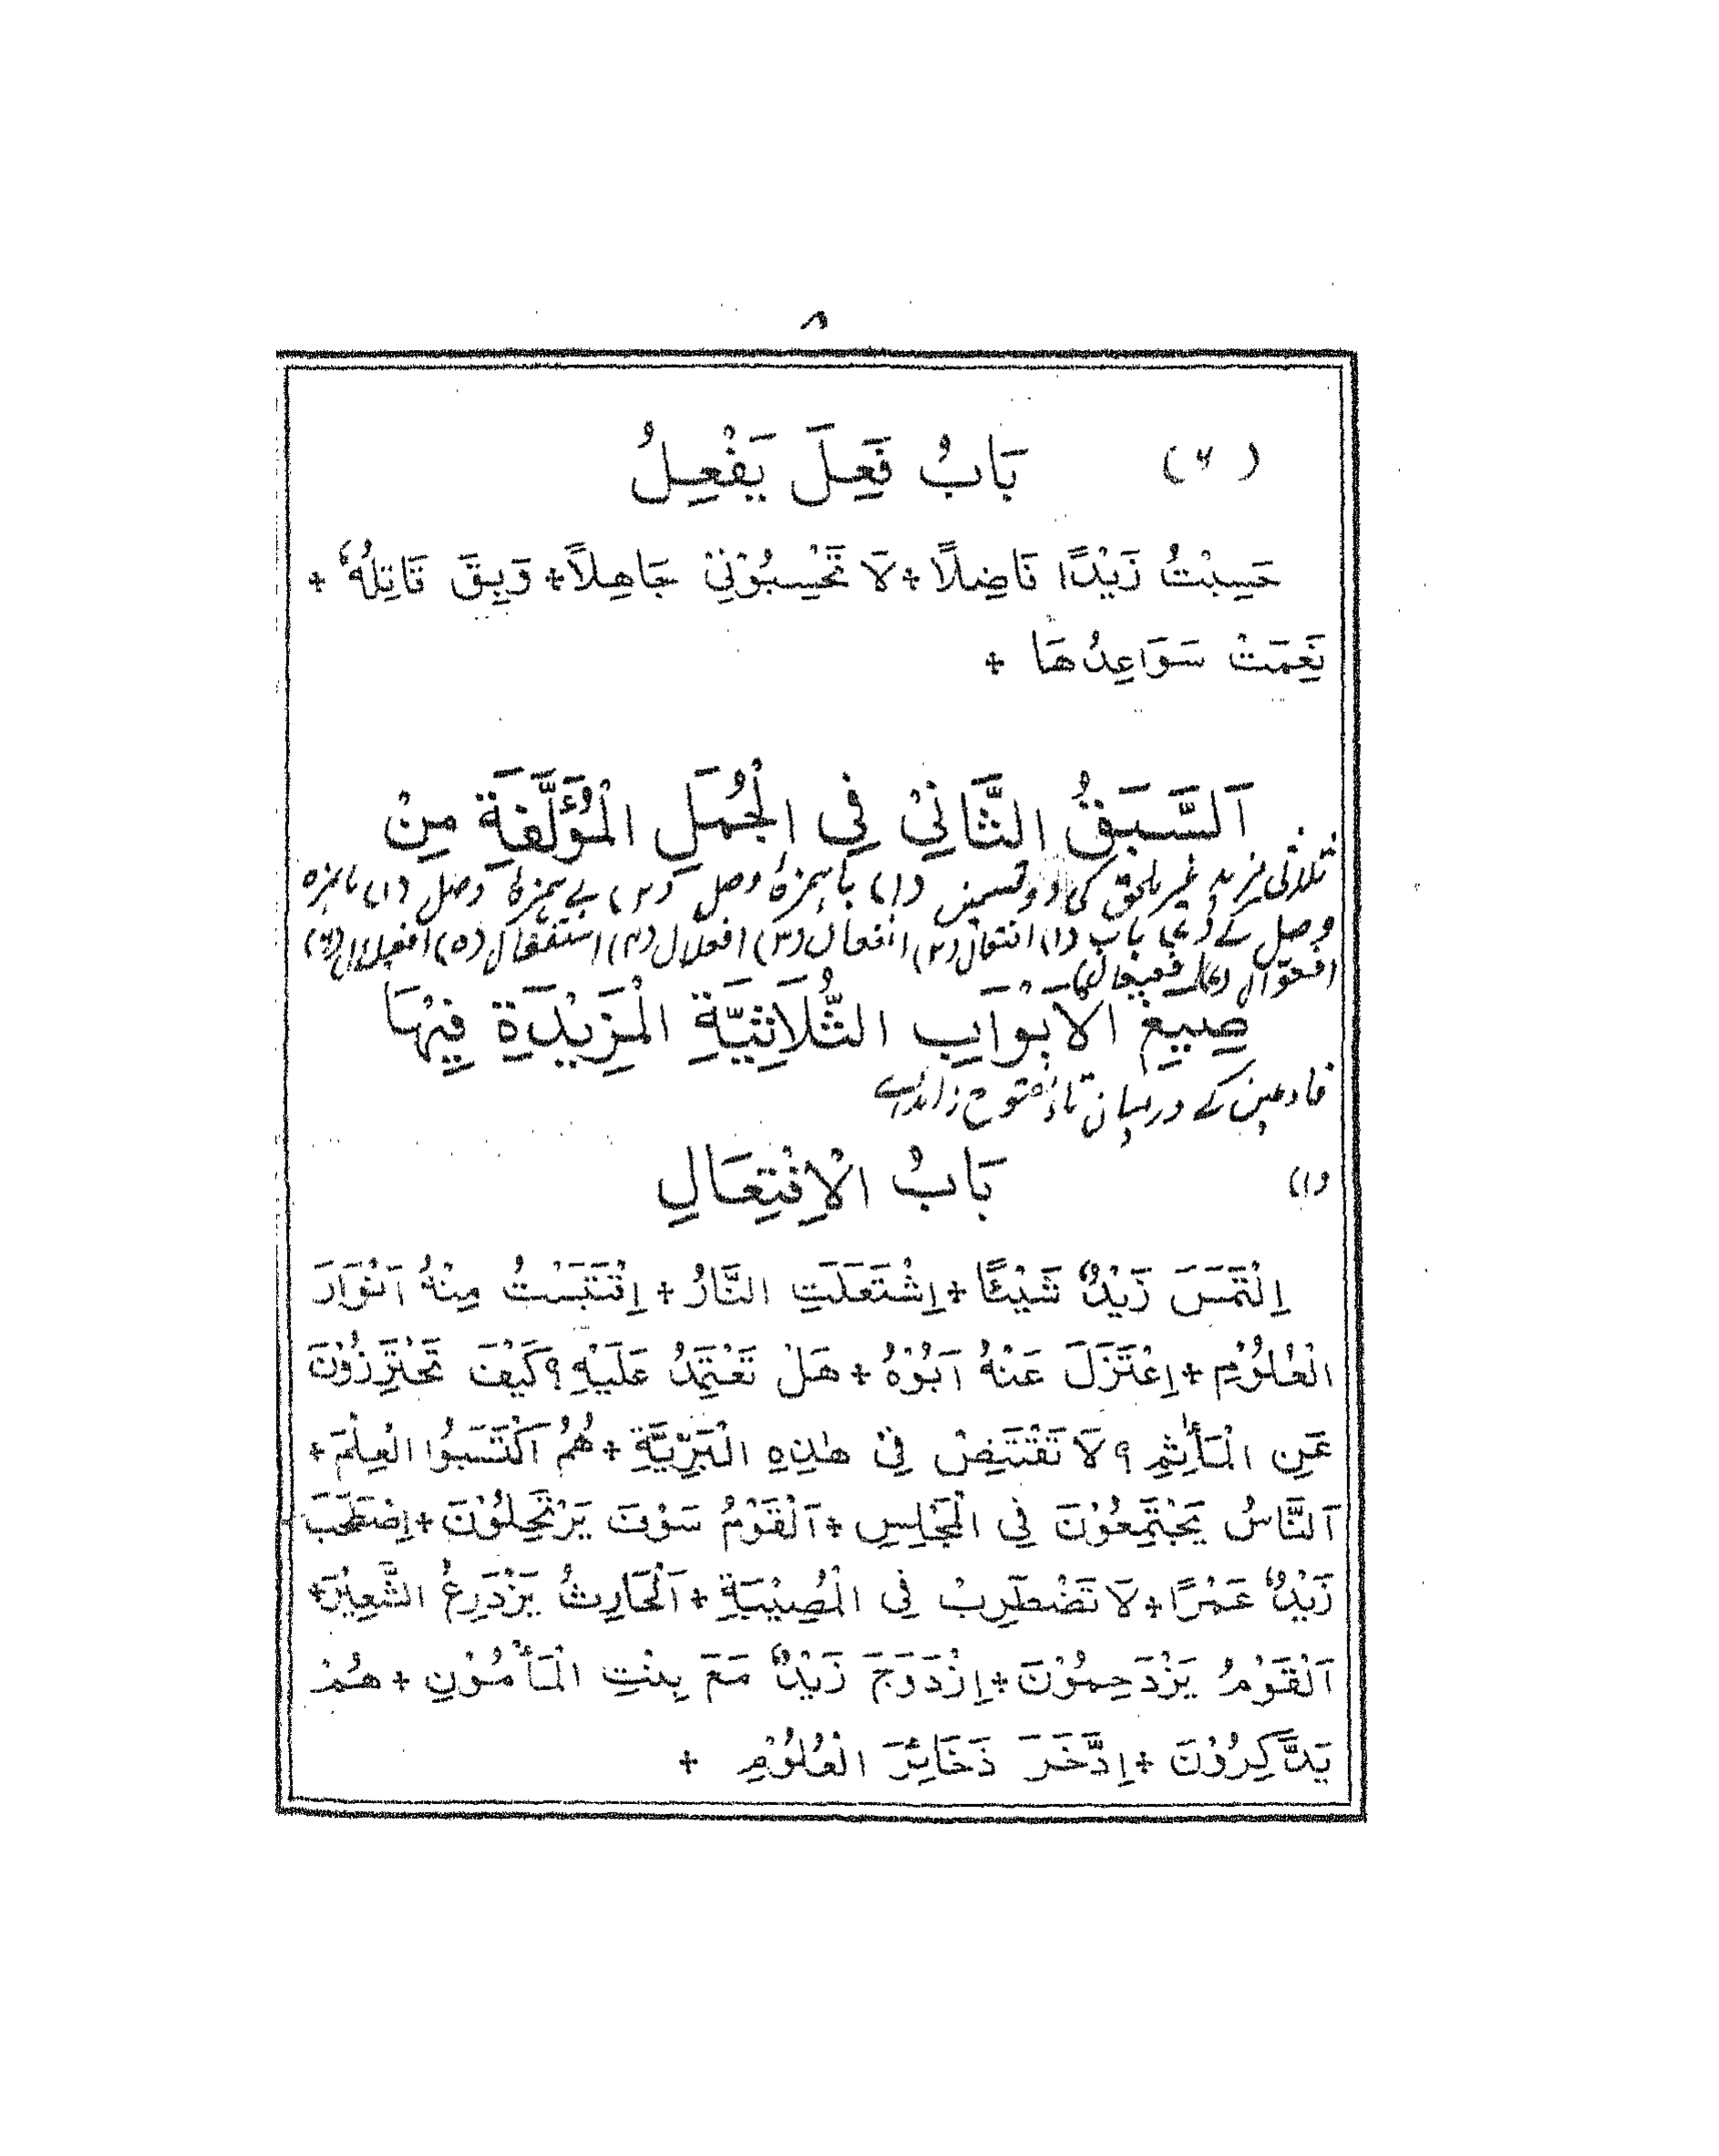 ۸
(۶) بَابُ فَعِلَ يَفْعِلُ
حَسِبْتُ زَيْدًا فَاضِلًا + لَا تَحْسِبُوْنِيْ جَاهِلًا + وَبِقَ قَاتِلُهٗ +
نَعِمَتْ سَوَاعِدُهَا +
اَلسَّبَقُ الثَّانِيْ فِي الْجُمَلِ الْمُؤَلَّفَةِ مِنْ
ثلاثی مزید غیر ملحق کی دو قسمیں (۱) با ہمزۂ وصل (۲) بے ہمزۂ وصل (۱) باہمزہ
وصل کے (۷) باب (۱) افتعال (۲) انفعال (۳) افعلال (۴) استفعال (۵) افعیلال (۶)
افعوّال (۷) افعیعال
صِيَغِ الْاَبْوَابِ الثُّلَاثِيَّةِ الْمَزِيْدَةِ فِيْهَا
فا و عین کے درمیان تائے مفتوح زائد ہے
(۱) بَابُ الْاِفْتِعَالِ
اِلْتَمَسَ زَيْدٌ شَيْئًا + اِشْتَعَلَتِ النَّارُ + اِقْتَبَسْتُ مِنْهُ اَنْوَارَ
الْعُلُوْمِ + اِعْتَزَلَ عَنْهُ اَبُوْهُ + هَلْ تَعْتَمِدُ عَلَيْهِ؟ كَيْفَ تَحْتَرِزُوْنَ
عَنِ الْمَأْثِمِ؟ لَا تَقْتَبِضْ فِيْ هٰذِهِ الْبَرِّيَّةِ + هُمُ اكْتَسَبُوا الْعِلْمَ +
اَلنَّاسُ يَجْتَمِعُوْنَ فِي الْمَجْلِسِ + اَلْقَوْمُ سَوْفَ يَرْتَحِلُوْنَ + اِصْطَحَبَ
زَيْدٌ عَمْرًا + لَا تَضْطَرِبْ فِي الْمُصِيْبَةِ + اَلْحَارِثُ يَزْدَرِعُ الشَّعِيْرَ +
اَلْقَوْمُ يَزْدَحِمُوْنَ + اِزْدَوَجَ زَيْدٌ مَعَ بِنْتِ الْمَأْمُوْنِ + هُمْ
يَدَّكِرُوْنَ + اِدَّخَرَ ذَخَائِرَ الْعُلُوْمِ +